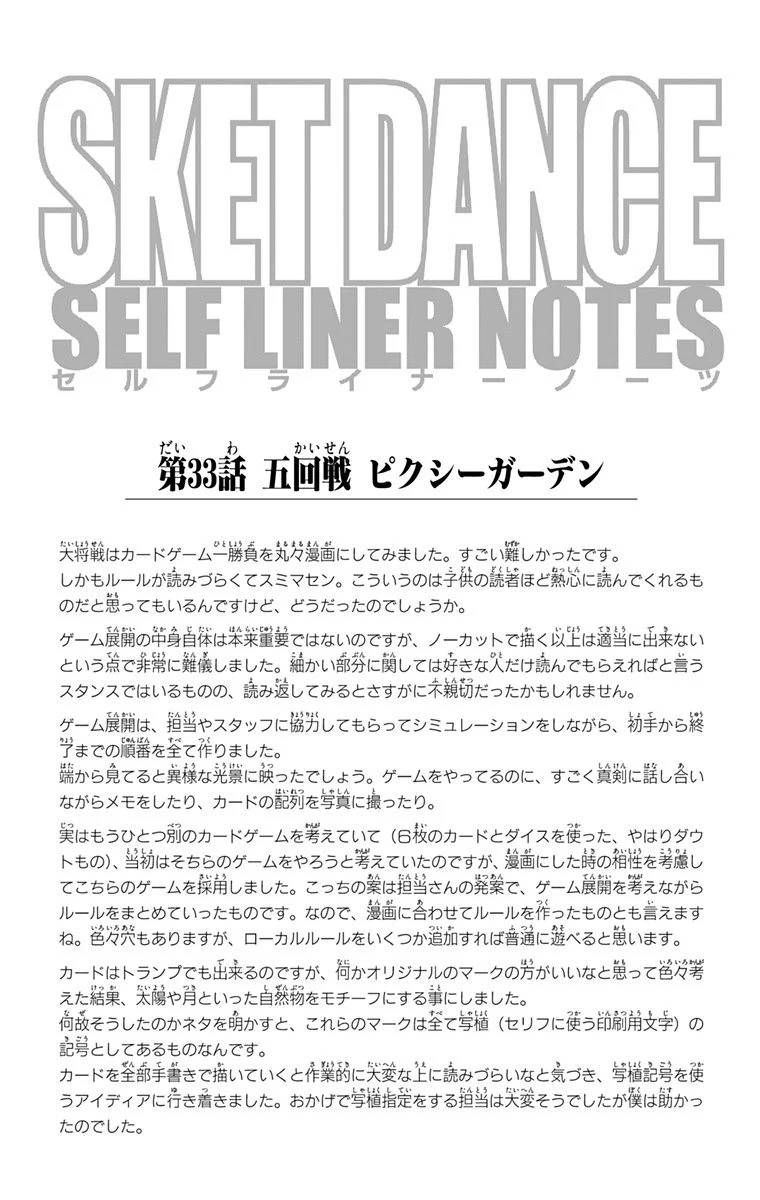 SKET DANCE
SELF LINER NOTES
セルフライナーノーツ
第33話 五回戦 ピクシーガーデン
大将戦はカードゲーム一勝負を丸々漫画にしてみました。すごい難しかったです。
しかもルールが読みづらくてスミマセン。こういうのは子供の読者ほど熱心に読んでくれるも
のだと思ってもいるんですけど、どうだったのでしょうか。
ゲーム展開の中身自体は本来重要ではないのですが、ノーカットで描く以上は適当に出来ない
という点で非常に難儀しました。細かい部分に関しては好きな人だけ読んでもらえればと言う
スタンスではいるものの、読み返してみるとさすがに不親切だったかもしれません。
ゲーム展開は、担当やスタッフに協力してもらってシミュレーションをしながら、初手から終
了までの順番を全て作りました。
端から見てると異様な光景に映ったでしょう。ゲームをやってるのに、すごく真剣に話し合い
ながらメモをしたり、カードの配列を写真に撮ったり。
実はもうひとつ別のカードゲームを考えていて（6枚のカードとダイスを使った、やはりダウ
トもの）、当初はそちらのゲームをやろうと考えていたのですが、漫画にした時の相性を考慮し
てこちらのゲームを採用しました。こっちの案は担当さんの発案で、ゲーム展開を考えながら
ルールをまとめていったものです。なので、漫画に合わせてルールを作ったものとも言えます
ね。色々穴もありますが、ローカルルールをいくつか追加すれば普通に遊べると思います。
カードはトランプでも出来るのですが、何かオリジナルのマークの方がいいなと思って色々考
えた結果、太陽や月といった自然物をモチーフにする事にしました。
何故そうしたのかネタを明かすと、これらのマークは全て写植（セリフに使う印刷用文字）の
記号としてあるものなんです。
カードを全部手書きで描いていくと作業的に大変な上に読みづらいなと気づき、写植記号を使
うアイディアに行き着きました。おかげで写植指定をする担当は大変そうでしたが僕は助かっ
たのでした。